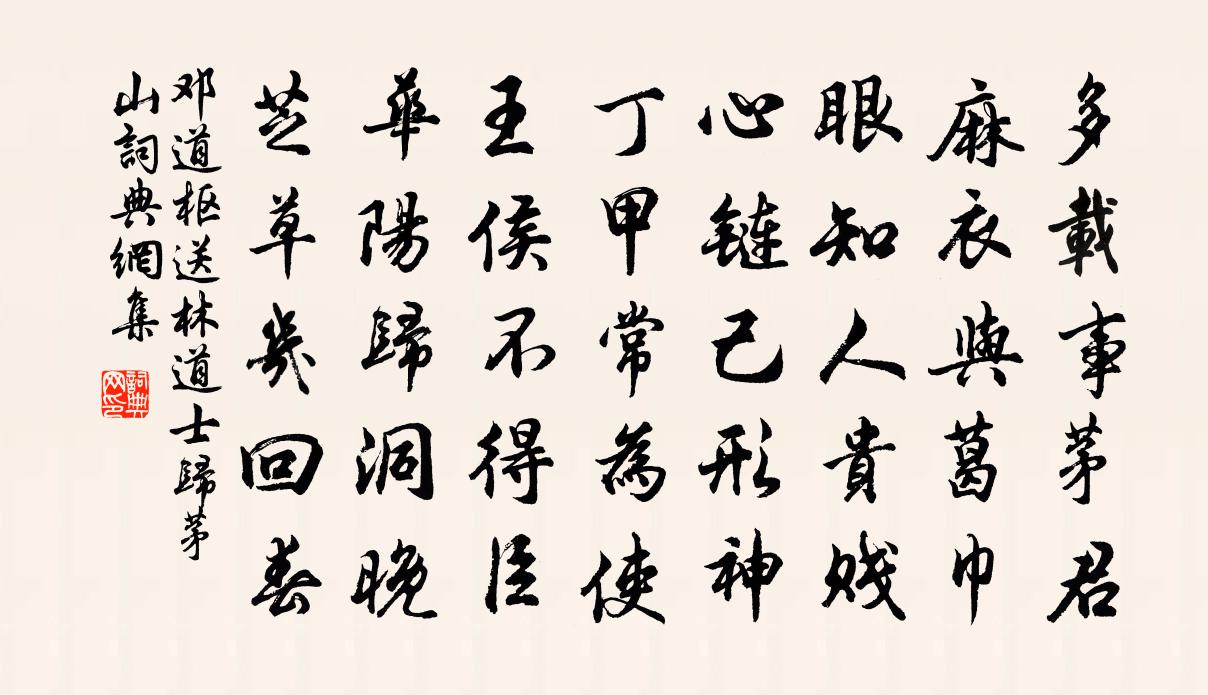 多載事茅君
麻衣與葛巾
眼知人貴賤
心鏈己形神
丁甲常為使
王侯不得臣
華陽歸洞晚
芝草幾回春
邓道枢送林道士歸茅
山詞典網集
詞典
网印